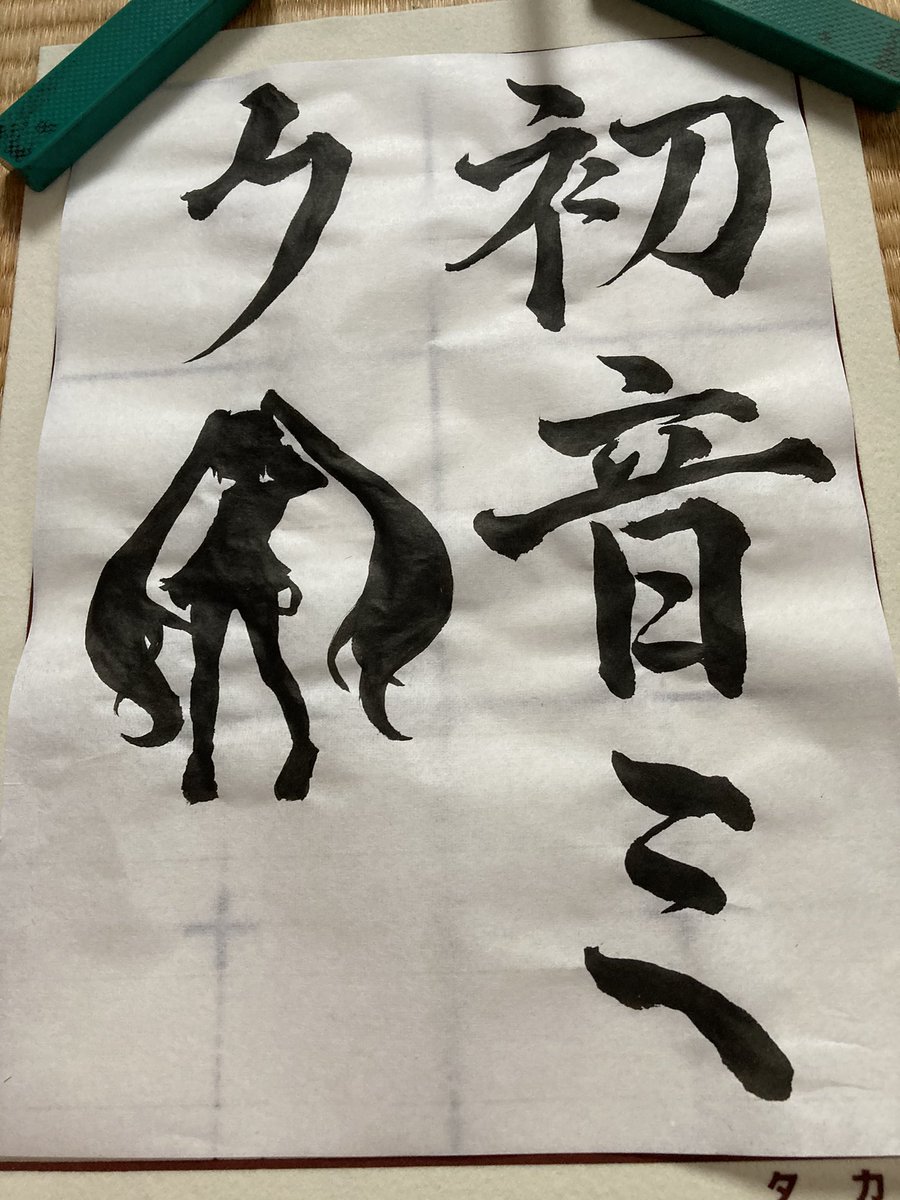 初音ミ
ク
タカ